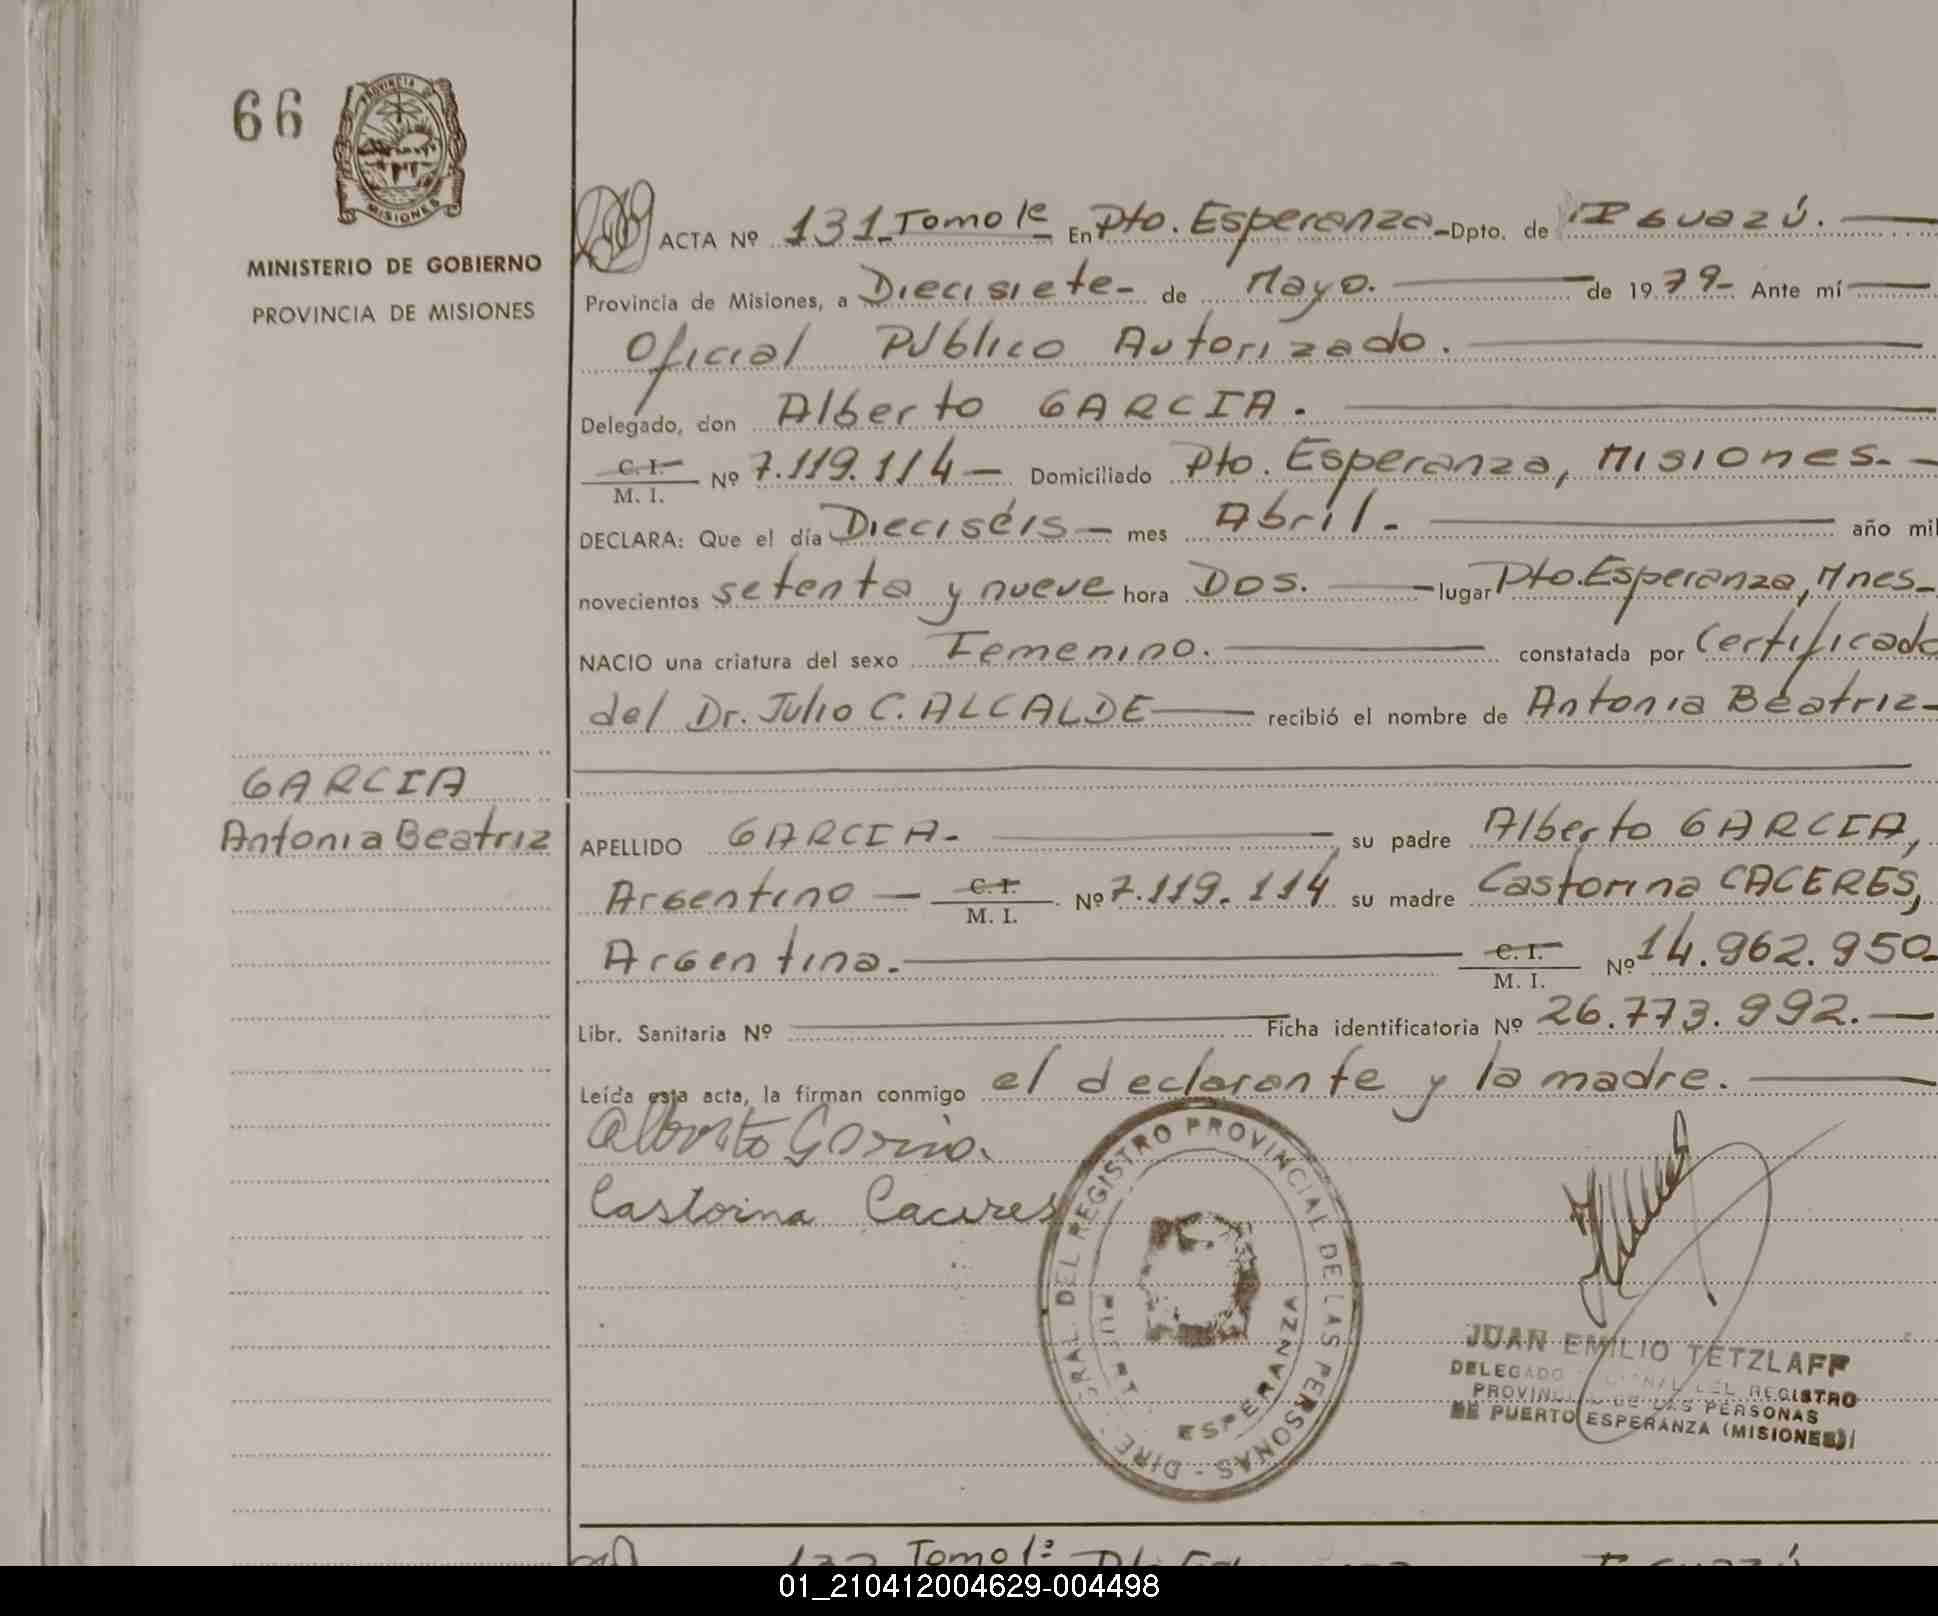 66
PROVINCIA DE
MISIONES
MINISTERIO DE GOBIERNO
PROVINCIA DE MISIONES
ACTA Nº 131 Tomo 1º En Pto. Esperanza - Dpto. de Iguazú.
Provincia de Misiones, a Diecisiete- de Mayo. de 1979- Ante mí
Oficial Público Autorizado.
Delegado, don Alberto GARCIA.
C. I. / M. I. Nº 7.119.114 - Domiciliado Pto. Esperanza, Misiones.-
DECLARA: Que el día Dieciséis - mes Abril.- año mil
novecientos setenta y nueve hora Dos. lugar Pto. Esperanza, Mnes-
NACIO una criatura del sexo Femenino. constatada por Certificado
del Dr. Julio C. ALCALDE recibió el nombre de Antonia Beatriz-
GARCIA
Antonia Beatriz
APELLIDO GARCIA- su padre Alberto GARCIA,
Argentino - C. I. / M. I. Nº 7.119.114 su madre Castorina CACERES,
Argentina. C. I. / M. I. Nº 14.962.950-
Libr. Sanitaria Nº Ficha identificatoria Nº 26.773.992.-
Leída esta acta, la firman conmigo el declarante y la madre.
Alberto Garcia.
Castorina Caceres
DIRE GRAL. DEL REGISTRO PROVINCIAL DE LAS PERSONAS -
ESPERANZA
JUAN EMILIO TETZLAFF
DELEGADO DEL REGISTRO
PROVINCIAL DE LAS PERSONAS
DE PUERTO ESPERANZA (MISIONES)
132 Tomo 1º Pto. Esperanza Iguazú
01_210412004629-004498